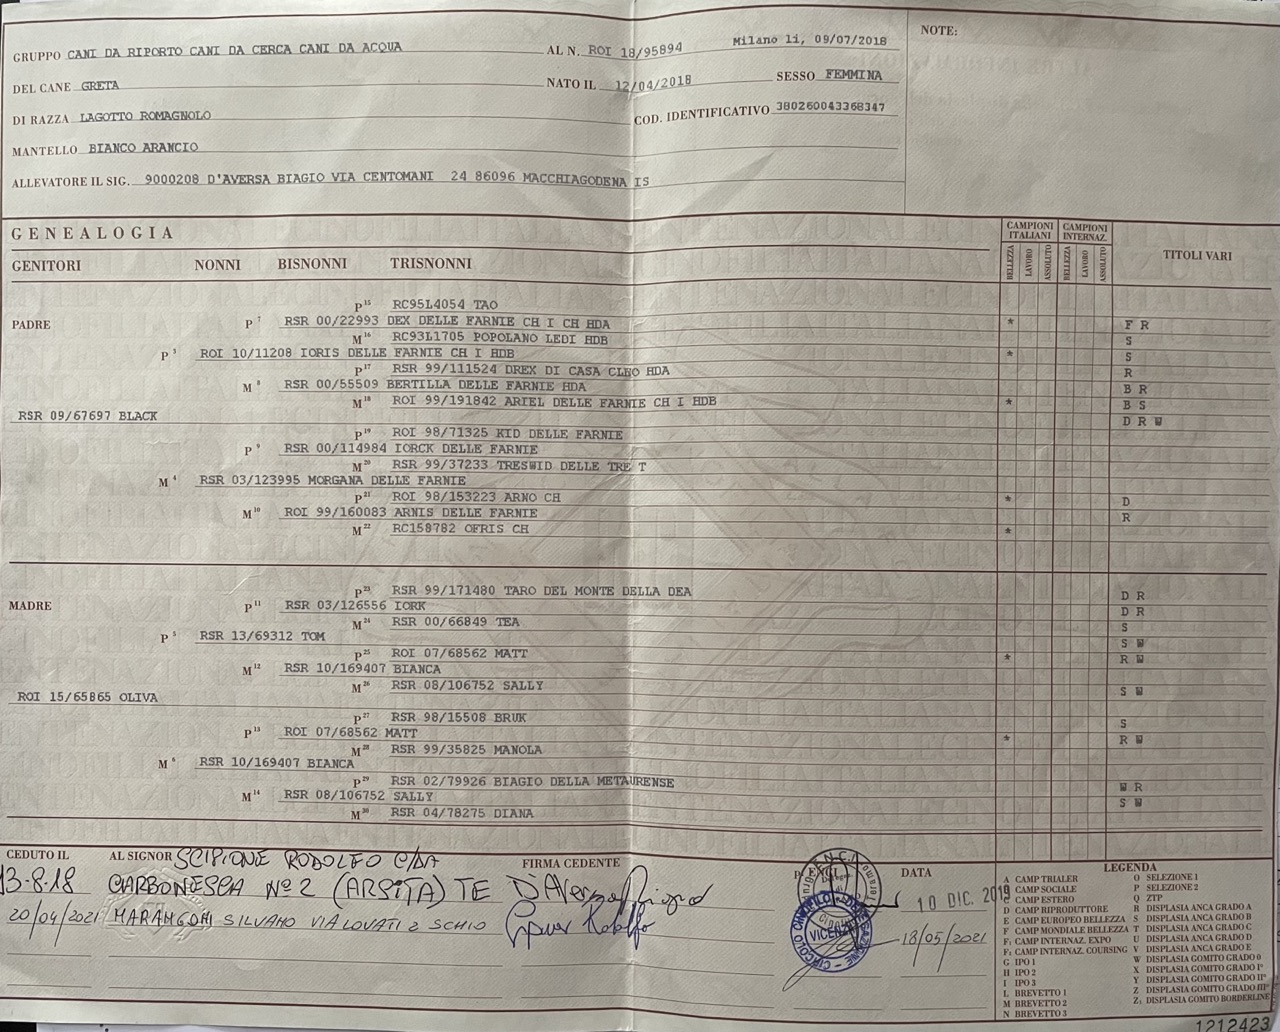 GRUPPO CANI DA RIPORTO CANI DA CERCA CANI DA ACQUA AL N. ROI 18/95894 Milano li, 09/07/2018
NOTE:
DEL CANE GRETA NATO IL 12/04/2018 SESSO FEMMINA
DI RAZZA LAGOTTO ROMAGNOLO COD. IDENTIFICATIVO 380260043368347
MANTELLO BIANCO ARANCIO
ALLEVATORE IL SIG. 9000208 D'AVERSA BIAGIO VIA CENTOMANI 24 86096 MACCHIAGODENA IS
GENEALOGIA
CAMPIONI ITALIANI CAMPIONI INTERNAZ.
GENITORI NONNI BISNONNI TRISNONNI BELLEZZA LAVORO ASSOLUTO BELLEZZA LAVORO ASSOLUTO TITOLI VARI
P 15 RC95L4054 TAO
PADRE P 7 RSR 00/22993 DEX DELLE FARNIE CH I CH HDA * F R
M 16 RC93L1705 POPOLANO LEDI HDB S
P 3 ROI 10/11208 IORIS DELLE FARNIE CH I HDB * S
P 17 RSR 99/111524 DREX DI CASA CLEO HDA R
M 8 RSR 00/55509 BERTILLA DELLE FARNIE HDA B R
M 18 ROI 99/191842 ARIEL DELLE FARNIE CH I HDB * B S
RSR 09/67697 BLACK D R W
P 19 ROI 98/71325 KID DELLE FARNIE
P 9 RSR 00/114984 IORCK DELLE FARNIE
M 20 RSR 99/37233 TRESWID DELLE TRE T
M 4 RSR 03/123995 MORGANA DELLE FARNIE
P 21 ROI 98/153223 ARNO CH * D
M 10 ROI 99/160083 ARNIS DELLE FARNIE R
M 22 RC158782 OFRIS CH *
P 23 RSR 99/171480 TARO DEL MONTE DELLA DEA D R
MADRE P 11 RSR 03/126556 IORK D R
M 24 RSR 00/66849 TEA S
P 5 RSR 13/69312 TOM S W
P 25 ROI 07/68562 MATT * R W
M 12 RSR 10/169407 BIANCA
M 26 RSR 08/106752 SALLY S W
ROI 15/65865 OLIVA
P 27 RSR 98/15508 BRUK S
P 13 ROI 07/68562 MATT * R W
M 28 RSR 99/35825 MANOLA
M 6 RSR 10/169407 BIANCA
P 29 RSR 02/79926 BIAGIO DELLA METAURENSE W R
M 14 RSR 08/106752 SALLY S W
M 30 RSR 04/78275 DIANA
CEDUTO IL AL SIGNOR SCIPIONE RODOLFO C/DA FIRMA CEDENTE DATA
13-8.18 CARBONESCA N°2 (ARSITA) TE 10 DIC. 2019
20/04/2021 MARANGONI SILVANO VIA LOVATI 2 SCHIO 18/05/2021
VICENZA
LEGENDA
A CAMP TRIALER O SELEZIONE 1
B CAMP SOCIALE P SELEZIONE 2
C CAMP ESTERO Q ZTP
D CAMP RIPRODUTTORE R DISPLASIA ANCA GRADO A
E CAMP EUROPEO BELLEZZA S DISPLASIA ANCA GRADO B
F CAMP MONDIALE BELLEZZA T DISPLASIA ANCA GRADO C
F1 CAMP INTERNAZ. EXPO U DISPLASIA ANCA GRADO D
F2 CAMP INTERNAZ. COURSING V DISPLASIA ANCA GRADO E
G IPO 1 W DISPLASIA GOMITO GRADO 0
H IPO 2 X DISPLASIA GOMITO GRADO I°
I IPO 3 Y DISPLASIA GOMITO GRADO II°
L BREVETTO 1 Z DISPLASIA GOMITO GRADO III°
M BREVETTO 2 Z1 DISPLASIA GOMITO BORDERLINE
N BREVETTO 3
1212423